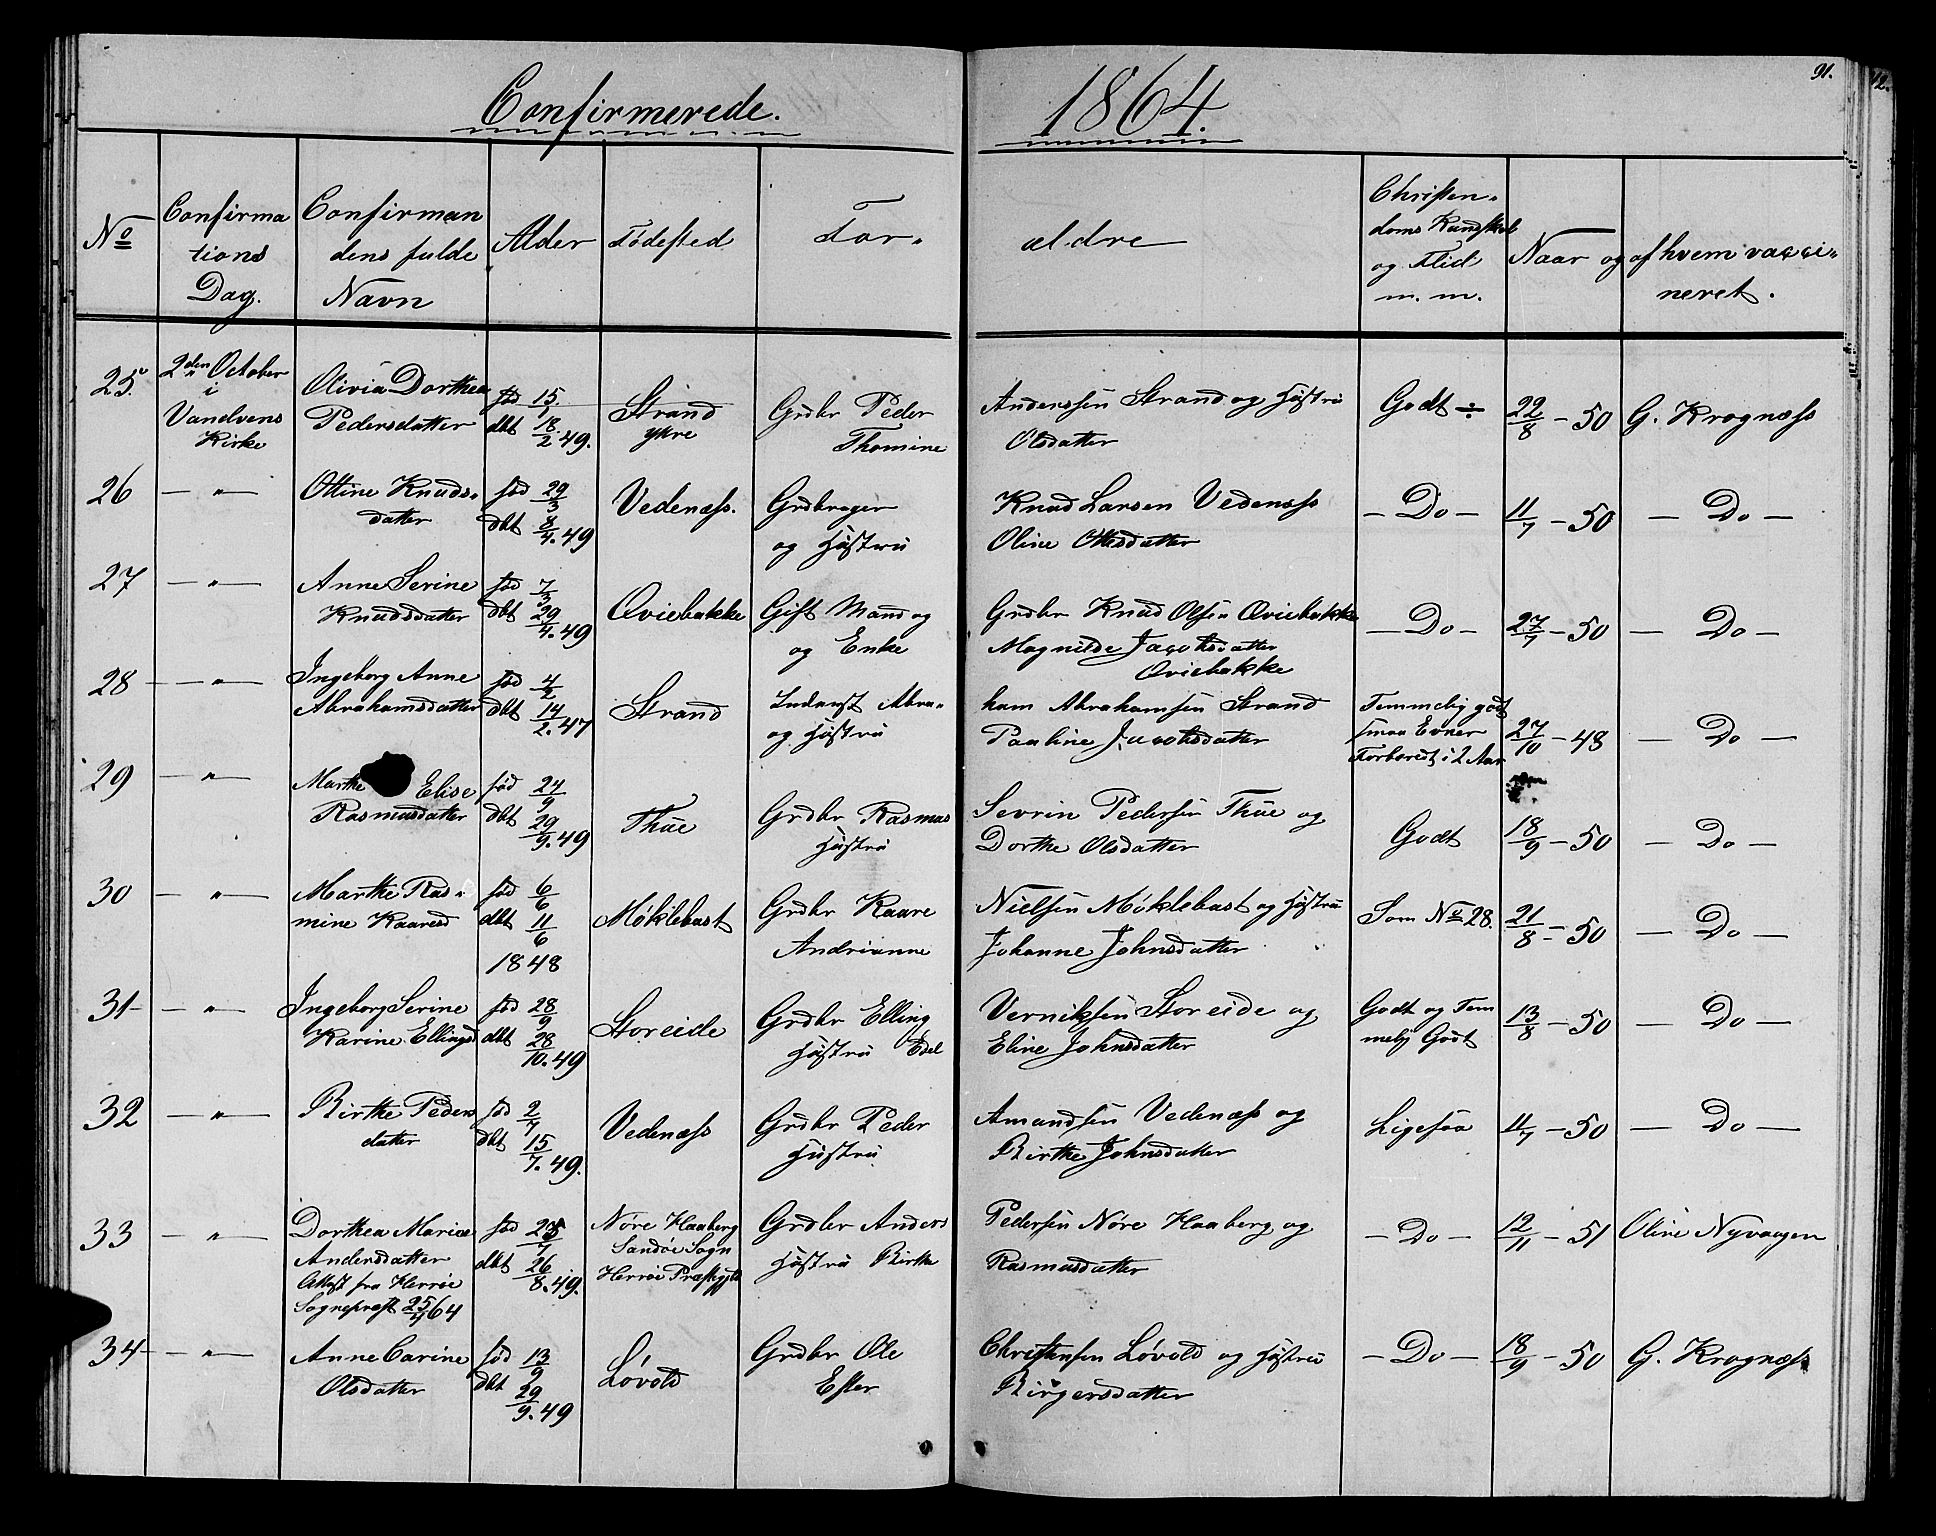 91.
12.
Confirmerede. 1864.
No
Confirma
tions
Dag.
Confirman
dens fulde
Navn
Alder
Fødested
For-
ældre
Christen-
doms Kundskab
og Flid
m. m.
Naar og af hvem vacci-
neret.
25. 2den October
i
Vanelvens
Kirke
Olivia Dorthea
Pedersdatter
fød 15/1
dbt 18/2 49.
Strand
ytre
Grdbr Peder Anderssen Strand og Hustru
Thomine Olsdatter
Godt ÷ 22/8 - 50 G. Krognæss
26 — " — Ottine Knuds-
datter
fød 29/3
dbt 8/4. 49
Vedenæss.
Grdbruger Knud Larsen Vedenæss
og Hustru Oline Ottesdatter
- Do - 11/7 - 50 — Do —
27 — " — Anne Serine
Knudsdatter
fød 7/3
dbt 29/4. 49
Qviebakke
Gift Mand og Grdbr Knud Olsen Qviebakke
og Enke Magnilde Jacobsdatter
Qviebakke
- Do - 27/7 - 50 — Do —
28 — " — Ingeborg Anne
Abrahamsdatter
fød 4/2
dbt 14/2. 47
Strand
Inderst Abra- ham Abrahamsen Strand
og Hustru Pauline Jacobsdatter
Temmelig godt
smaa Evner
Forberedt i 2 Aar
27/10 - 48 — Do —
29 — " — Marthe Elise
Rasmusdatter
fød 24/9
dbt 29/9. 49
Thue
Grdbr Rasmus Sevrin Pedersen Thue og
Hustru Dorthe Olsdatter
Godt 18/9 - 50 — Do —
30 — " — Marthe Ras-
mine Kaaresd
fød 6/6
dbt 11/6
1848
Møklebast
Grdbr Kaare Nielsen Møklebast og Hustru
Andrianne Johanne Johnsdatter
Som No 28. 21/8 - 50 — Do —
31 — " — Ingeborg Serine
Karine Ellingsd
fød 28/9
dbt 28/10. 49
Storeide
Grdbr Elling Verniksen Storeide og
Hustru Edel Eline Johnsdatter
Godt og Tem
melig Godt
13/8 - 50 — Do —
32 — " — Birthe Peders
datter
fød 2/7
dbt 15/7. 49.
Vedenæss
Grdbr Peder Amandsen Vedenæss og
Hustru Birthe Johnsdatter
Ligesaa 11/7 - 50 — Do —
33 — " — Dorthea Marie
Andersdatter
Attest fra Herrøe
Sognepræst 25/4 64
fød 25/7
dbt 26/8. 49.
Nøre Haaberg
Sandøe Sogn
Herrøe Præstgjld
Grdbr Anders Pedersen Nøre Haaberg og
Hustru Birthe Rasmusdatter
- Do - 12/11 - 51 Oline Nyvaagen
34 — " — Anne Carine
Olsdatter
fød 13/9
dbt 29/9. 49
Løvold
Grdbr Ole Christensen Løvold og Hustru
Ester Birgersdatter
- Do - 18/9 - 50 G. Krognæss